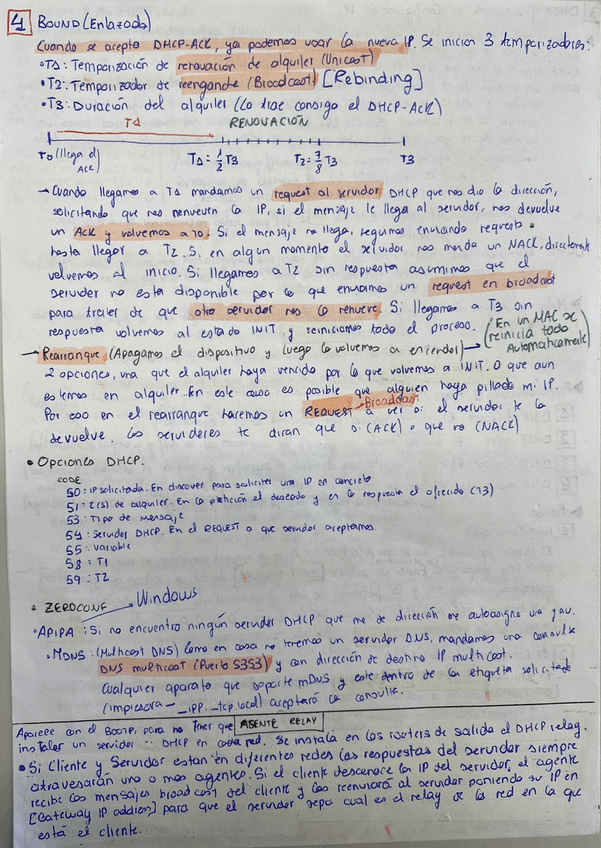 4 BOUND (Enlazado)
Cuando se acepta DHCP-ACK, ya podemos usar la nueva IP. Se inician 3 temporizadores:
• T1: Temporización de renovación de alquiler (Unicast)
• T2: Temporizador de reenganche (Broadcast) [Rebinding]
• T3: Duración del alquiler (Lo trae consigo el DHCP-ACK)
T1 RENOVACIÓN
T0 (llega el ACK) T1 = 1/2 T3 T2 = 7/8 T3 T3
→ Cuando llegamos a T1 mandamos un request al servidor DHCP que nos dio la dirección,
solicitando que nos renueven la IP, si el mensaje le llega al servidor, nos devuelve
un ACK y volvemos a T0. Si el mensaje no llega, seguimos enviando requests
hasta llegar a T2. Si en algún momento el servidor nos manda un NACK, directamente
volvemos al inicio. Si llegamos a T2 sin respuesta asumimos que el
servidor no esta disponible por lo que enviamos un request en broadcast
para tratar de que otro servidor nos lo renueve. Si llegamos a T3 sin
respuesta volvemos al estado INIT y reiniciamos todo el proceso.
→ Rearranque (Apagamos el dispositivo y luego lo volvemos a encender) → (En un MAC se reinicia todo Automaticamente)
2 opciones, una que el alquiler haya vencido por lo que volvemos a INIT. O que aun
estemos en alquiler. En este caso es posible que alguien haya pillado mi IP.
Por eso en el rearranque haremos un REQUEST → Broadcast a ver si el servidor te lo
devuelve. Los servidores te diran que si (ACK) o que no (NACK)
• Opciones DHCP.
CODE
50: IP solicitada. En discover para solicitar una IP en concreto
51: t(s) de alquiler. En la petición el deseado y en la respuesta el ofrecido (T3)
53: Tipo de mensaje
54: Servidor DHCP. En el REQUEST a que servidor aceptamos.
55: Variable
58: T1
59: T2
• ZEROCONF
Windows
• APIPA: Si no encuentro ningún servidor DHCP que me de dirección me autoasigno una yau.
• MDNS: (Multicast DNS) Como en casa no tenemos un servidor DNS, mandamos una consulta
DNS multicast (Puerto 5353) y con dirección de destino IP multicast.
Cualquier aparato que soporte mDNS y este dentro de la etiqueta solicitada
(impresora _ipp._tcp local) aceptará la consulta.
Aparece con el BOOTP, para no tener que AGENTE RELAY
instalar un servidor DHCP en cada red. Se instala en los routers de salida el DHCP relay.
• Si Cliente y Servidor estan en diferentes redes las respuestas del servidor siempre
atravesarán uno o mas agentes. Si el cliente desconoce la IP del servidor, el agente
recibe los mensajes broadcast del cliente y los reenviará al servidor poniendo su IP en
[Gateway IP address] para que el servidor sepa cual es el relay de la red en la que
está el cliente.